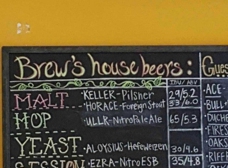 Brew's house beers: Gues
MALT KELLER-Pilsner 29/5.2 ACE
HORACE-Foreign Stout BULL
HOP ULLK-Nitro Pale Ale 65/5.3
FIRES
YEAST ALOYSIUS-Hefeweizen 30/4.6 OAKS
RIFF
SESSION EZRA-Nitro ESB 35/4.8